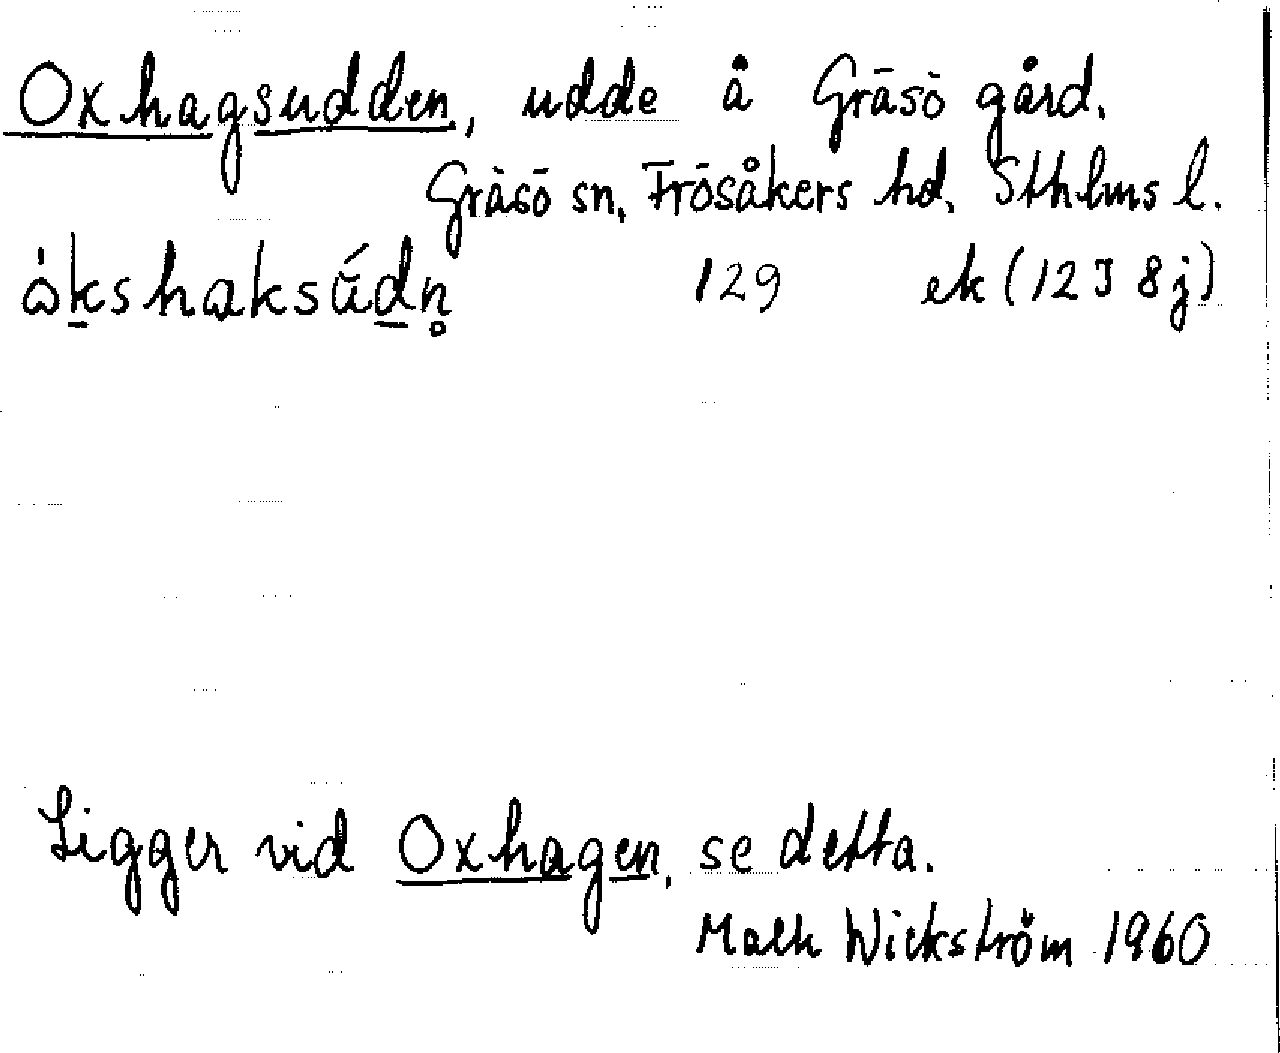 Oxhagsudden, udde å Gräsö gård.
Gräsö sn, Frösåkers hd. Sthlms l.
129 ek (12 I 8 j)
Ligger vid Oxhagen, se detta.
Wickström 1960